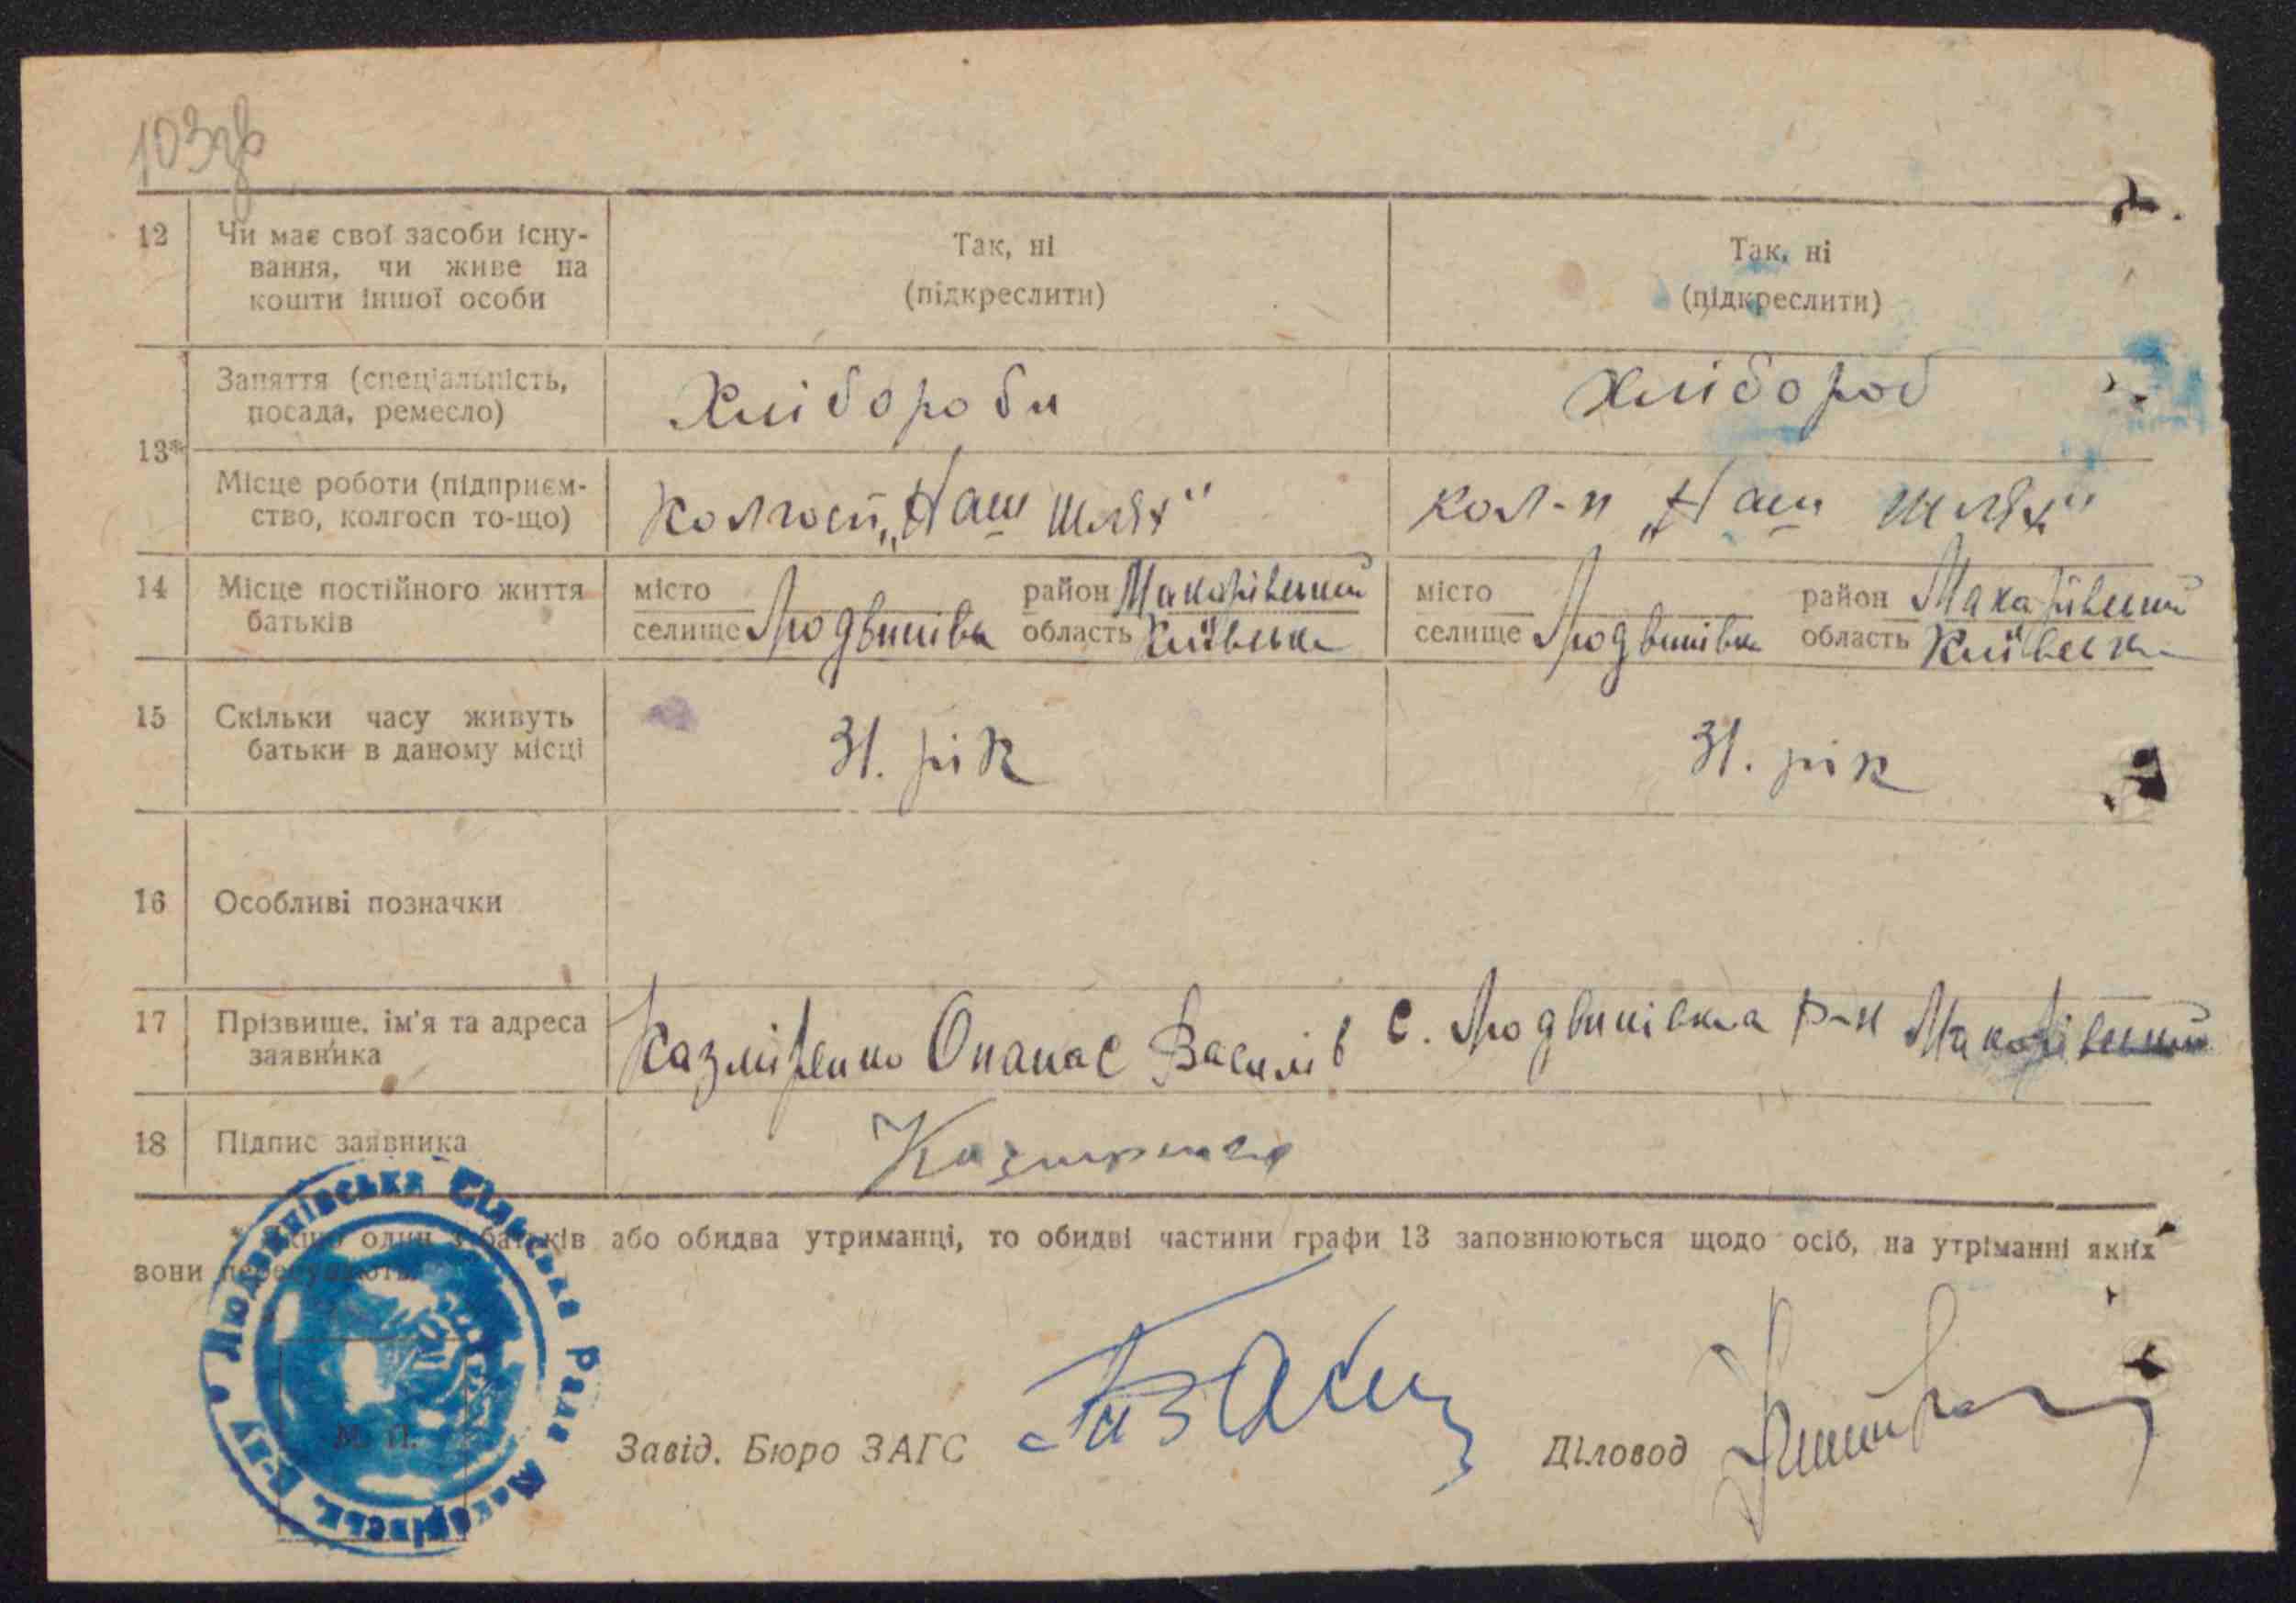 103зв
12 Чи має свої засоби існу- Так, ні Так, ні
вання, чи живе на (підкреслити) (підкреслити)
кошти іншої особи
Заняття (спеціальність, Хлібороби Хлібороб
посада, ремесло)
13*
Місце роботи (підприєм- Колгосп „Наш шлях" кол-п „Наш шлях"
ство, колгосп то-що)
14 Місце постійного життя місто район Макарівський місто район Макарівський
батьків селище Людвинівка область Київська селище Людвинівка область Київська
15 Скільки часу живуть 31. рік 31. рік
батьки в даному місці
16 Особливі позначки
17 Прізвище, ім'я та адреса Казміренко Опанас Василів с. Людвинівка р-н Макарівський
заявника
18 Підпис заявника Казмиренко
* Якщо один з батьків або обидва утриманці, то обидві частини графи 13 заповнюються щодо осіб, на утріманні яких
вони перебувають.
Людвинівська Сільська Рада Макарівськ. Р-ну
М. П.
Завід. Бюро ЗАГС Діловод